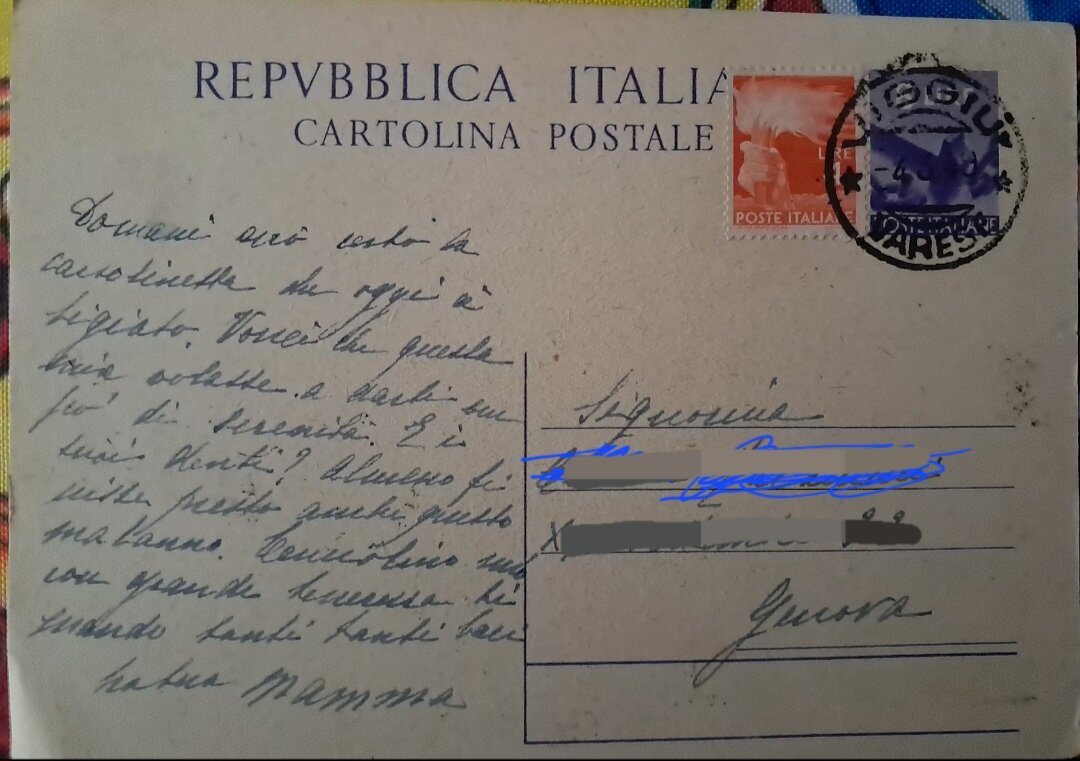 REPVBBLICA ITALIA
CARTOLINA POSTALE
LIRE
POSTE ITALIANE
VIGGIU'
-4
POSTE ITALIANE
VARESE
Domani avrò certo la
cartolinetta che oggi ài
Vorrei che questa
mia volasse a darti un
po' di serenità. E i
tuoi denti? Almeno fi
nisse presto anche questo
malanno. mio
con grande tenerezza ti
mando tanti tanti baci
la tua Mamma
Signorina
Genova